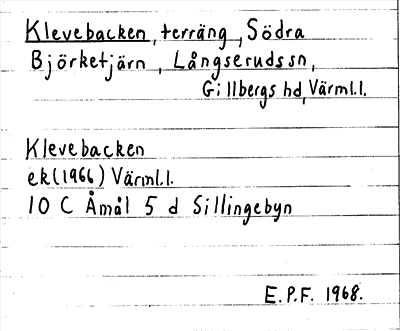 Klevebacken, terräng, Södra
Björketjärn, Långserudssn,
Gillbergs hd, Värml.l.
Klevebacken
ek(1966) Värml.l.
10 C Åmål 5 d Sillingebyn
E.P.F. 1968.